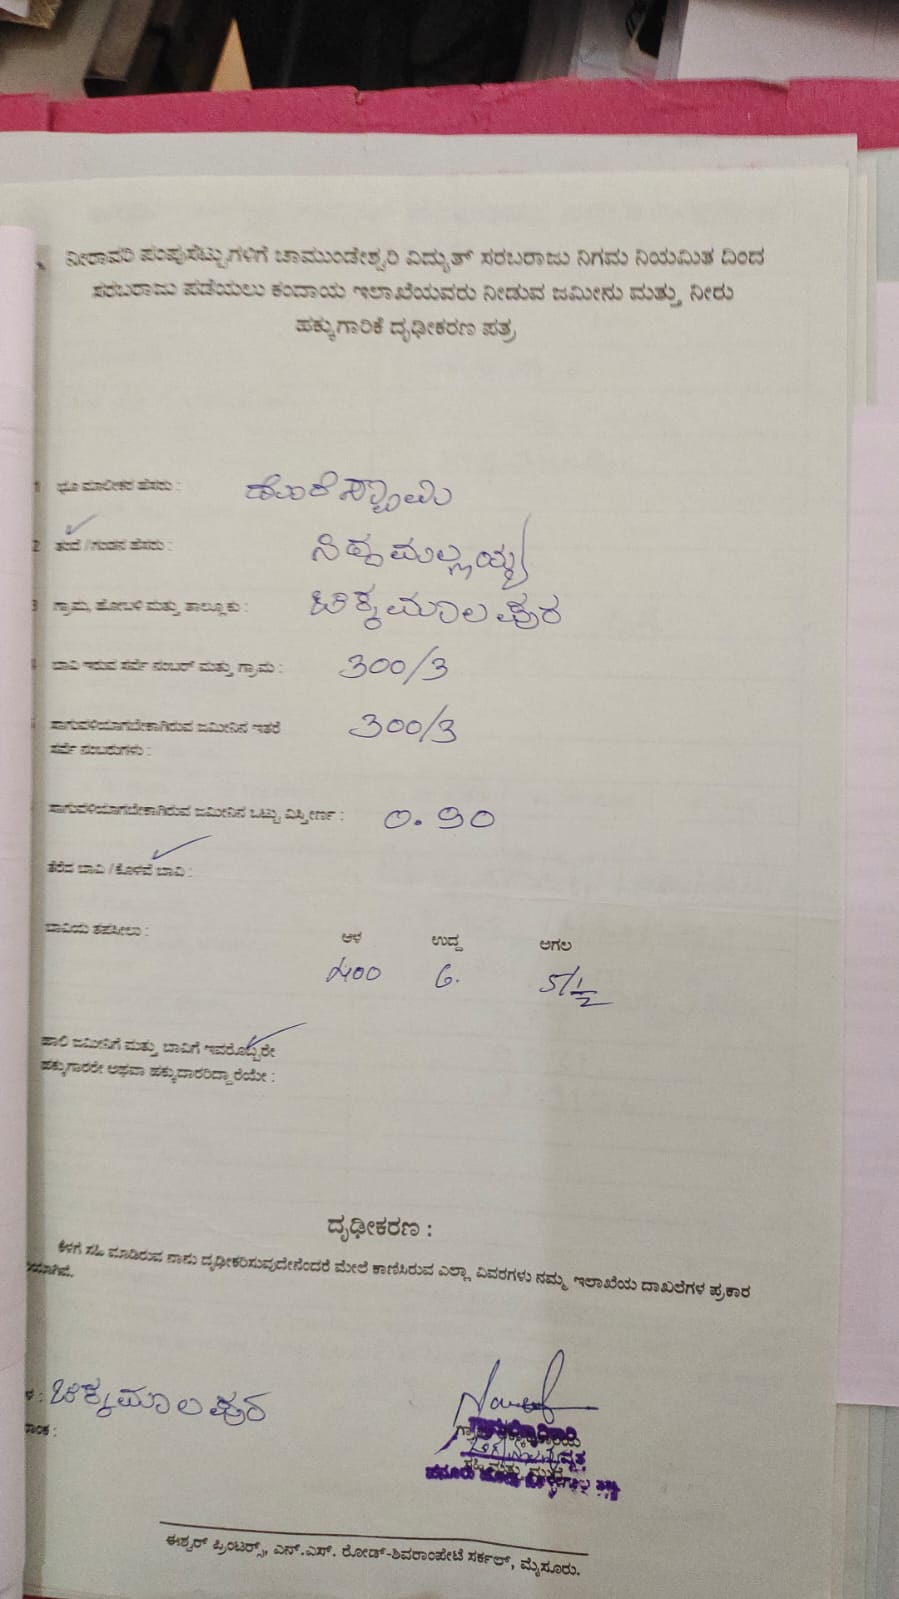 ನೀರಾವರಿ ಪಂಪುಸೆಟ್ಟುಗಳಿಗೆ ಚಾಮುಂಡೇಶ್ವರಿ ವಿದ್ಯುತ್ ಸರಬರಾಜು ನಿಗಮ ನಿಯಮಿತ ದಿಂದ
ಸರಬರಾಜು ಪಡೆಯಲು ಕಂದಾಯ ಇಲಾಖೆಯವರು ನೀಡುವ ಜಮೀನು ಮತ್ತು ನೀರು
ಹಕ್ಕುಗಾರಿಕೆ ದೃಢೀಕರಣ ಪತ್ರ
1 ಭೂ ಮಾಲೀಕರ ಹೆಸರು :
2 ತಂದೆ / ಗಂಡನ ಹೆಸರು : ಸಿದ್ದಮಲ್ಲಯ್ಯ
3 ಗ್ರಾಮ, ಹೋಬಳಿ ಮತ್ತು ತಾಲ್ಲೂಕು : ಚಿಕ್ಕಮಾಲಪುರ
ಬಾವಿ ಇರುವ ಸರ್ವೆ ನಂಬರ್ ಮತ್ತು ಗ್ರಾಮ : 300/3
ಸಾಗುವಳಿಯಾಗಬೇಕಾಗಿರುವ ಜಮೀನಿನ ಇತರೆ 300/3
ಸರ್ವೆ ನಂಬರುಗಳು :
ಸಾಗುವಳಿಯಾಗಬೇಕಾಗಿರುವ ಜಮೀನಿನ ಒಟ್ಟು ವಿಸ್ತೀರ್ಣ :
ತೆರೆದ ಬಾವಿ / ಕೊಳವೆ ಬಾವಿ :
ಬಾವಿಯ ತಪಸೀಲು : ಆಳ ಉದ್ದ ಅಗಲ
400 6. 5/½
ಹಾಲಿ ಜಮೀನಿಗೆ ಮತ್ತು ಬಾವಿಗೆ ಇವರೊಬ್ಬರೇ
ಹಕ್ಕುಗಾರರೇ ಅಥವಾ ಹಕ್ಕುದಾರರಿದ್ದಾರೆಯೇ :
ದೃಢೀಕರಣ :
ಕೆಳಗೆ ಸಹಿ ಮಾಡಿರುವ ನಾನು ದೃಢೀಕರಿಸುವುದೇನೆಂದರೆ ಮೇಲೆ ಕಾಣಿಸಿರುವ ಎಲ್ಲಾ ವಿವರಗಳು ನಮ್ಮ ಇಲಾಖೆಯ ದಾಖಲೆಗಳ ಪ್ರಕಾರ
ಚಿಕ್ಕಮಾಲಪುರ
ಈಶ್ವರ್ ಪ್ರಿಂಟರ್ಸ್, ಎನ್.ಎಸ್. ರೋಡ್-ಶಿವರಾಂಪೇಟೆ ಸರ್ಕಲ್, ಮೈಸೂರು.